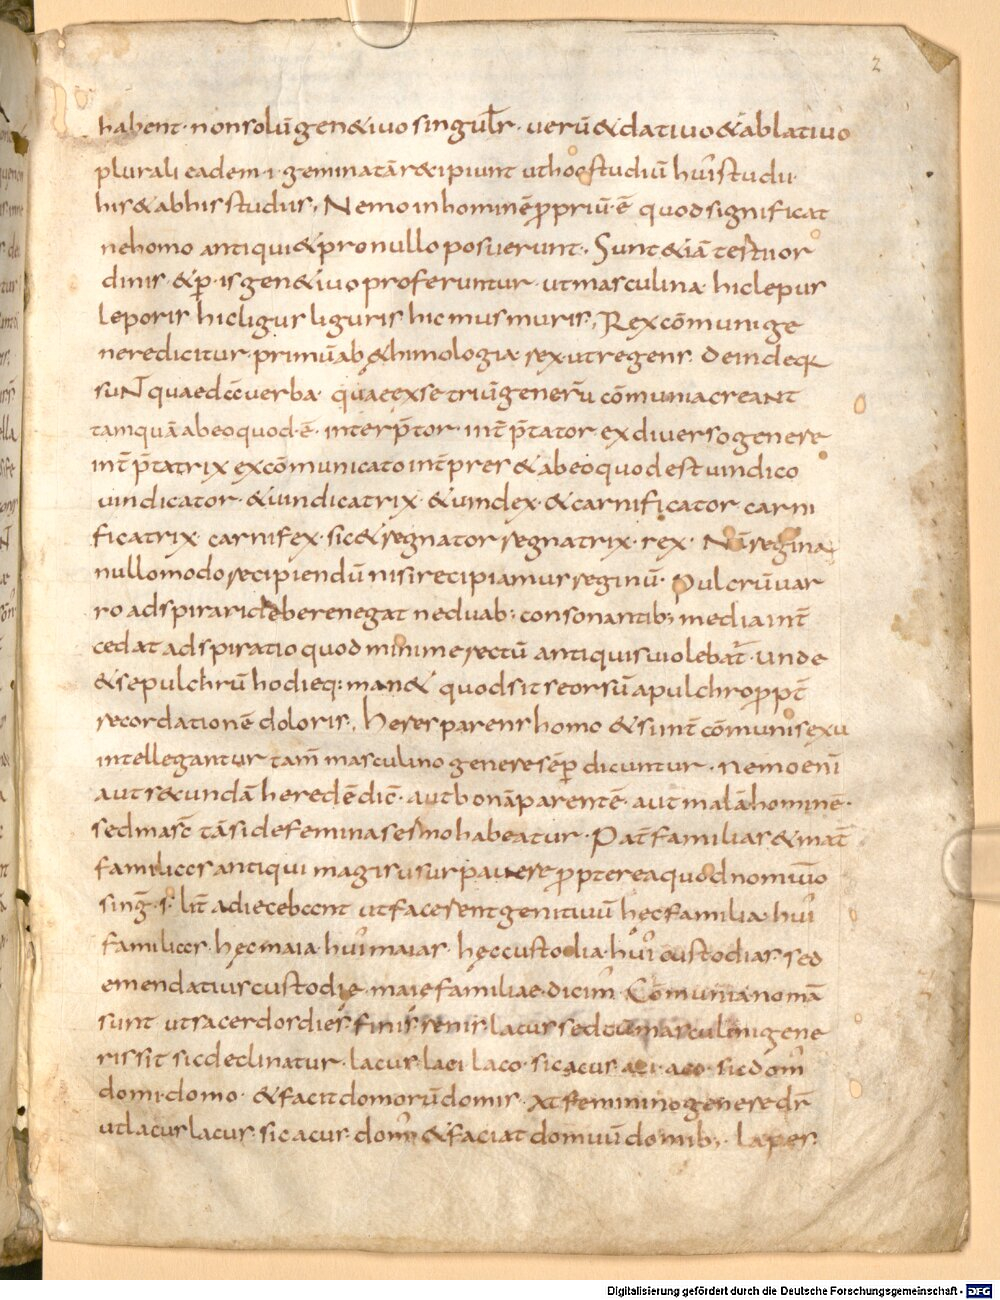 2
habent· non solū gen&iuo singulr̄· uerū & datiuo & ablatiuo
plurali eadem ·i· geminatā r&ipiunt ut hoc studiū hui' studii·
his & ab his studiis, Nemo in hominē ppriū ·ē· quod significat
nehomo antiqui & pro nullo posuerunt· Sunt & iā tertii or
dinis & p ·is gen&iuo proferuntur· ut masculina· hic lepus
leporis hic ligur liguris hic mus muris, Rex cōmuni ge
nere dicitur· primū ab &himologia rex· ut regens· deinde q
suNT quaedā uerba· quae ex se triū generū cōmunia creaNt
tamquā ab eo quod ·ē· interp̄tor· int̄p̄tator ex diuerso genere
int̄p̄tatrix ex cōmunicato int̄pres & ab eo quod est uindico
uindicator· & uindicatrix· & uindex· & carnificator carni
ficatrix· carnifex· sic & regnator regnatrix· rex· Nā regina
nullo modo recipiendū nisi recipiamus reginū· Pulcrū uar
ro adspirari debere negat ne duab: consonantib; media int̄
cedat adspiratio quod minime rectū antiquis uidebat̄· unde
& sepulchrū hodieq: man& quod sit seorsū a pulchro ppt̄
recordationē doloris, heres parens homo & si int̄ cōmuni sexu
intellegantur tam̄ masculino genere sēp dicuntur· nemo eni
aut s&undā heredē dic̄· aut bonā parentē· aut malā hominē·
sed masc̄ tā si de femina sermo habeatur· Pat̄ familias & mat̄
familias antiqui magis usurpauere ppterea quod nomiuo
sing̅· s· lit̄ adiecebant ut facerent genitiuū hęc familia· hui'
familias· hęc maia· hui' maias· hęc custodia· hui' custodias sed
emendatius custodię· maię familiae· dicim' Cōmunia nomā
sunt ut sacerdos dies· finis senis· lacus sed cū masculini gene
ris sit sic declinatur· lacus laci laco· sic acus aci· aco· sic dom'
domi· domo· & facit domorū domis· At feminino genere dr̄
ut lacus lacus· sic acus· dom' & faciat domuū domib;· lapes·
Digitalisierung gefördert durch die Deutsche Forschungsgemeinschaft - DFG